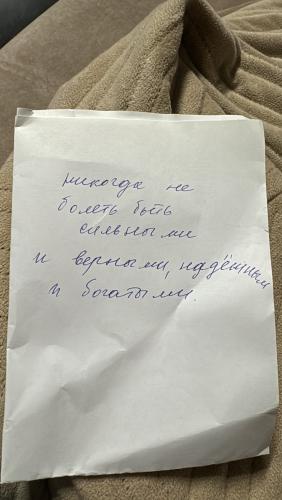 никогда не
болеть быть
сильными
и верными, надёжным
и богатыми.